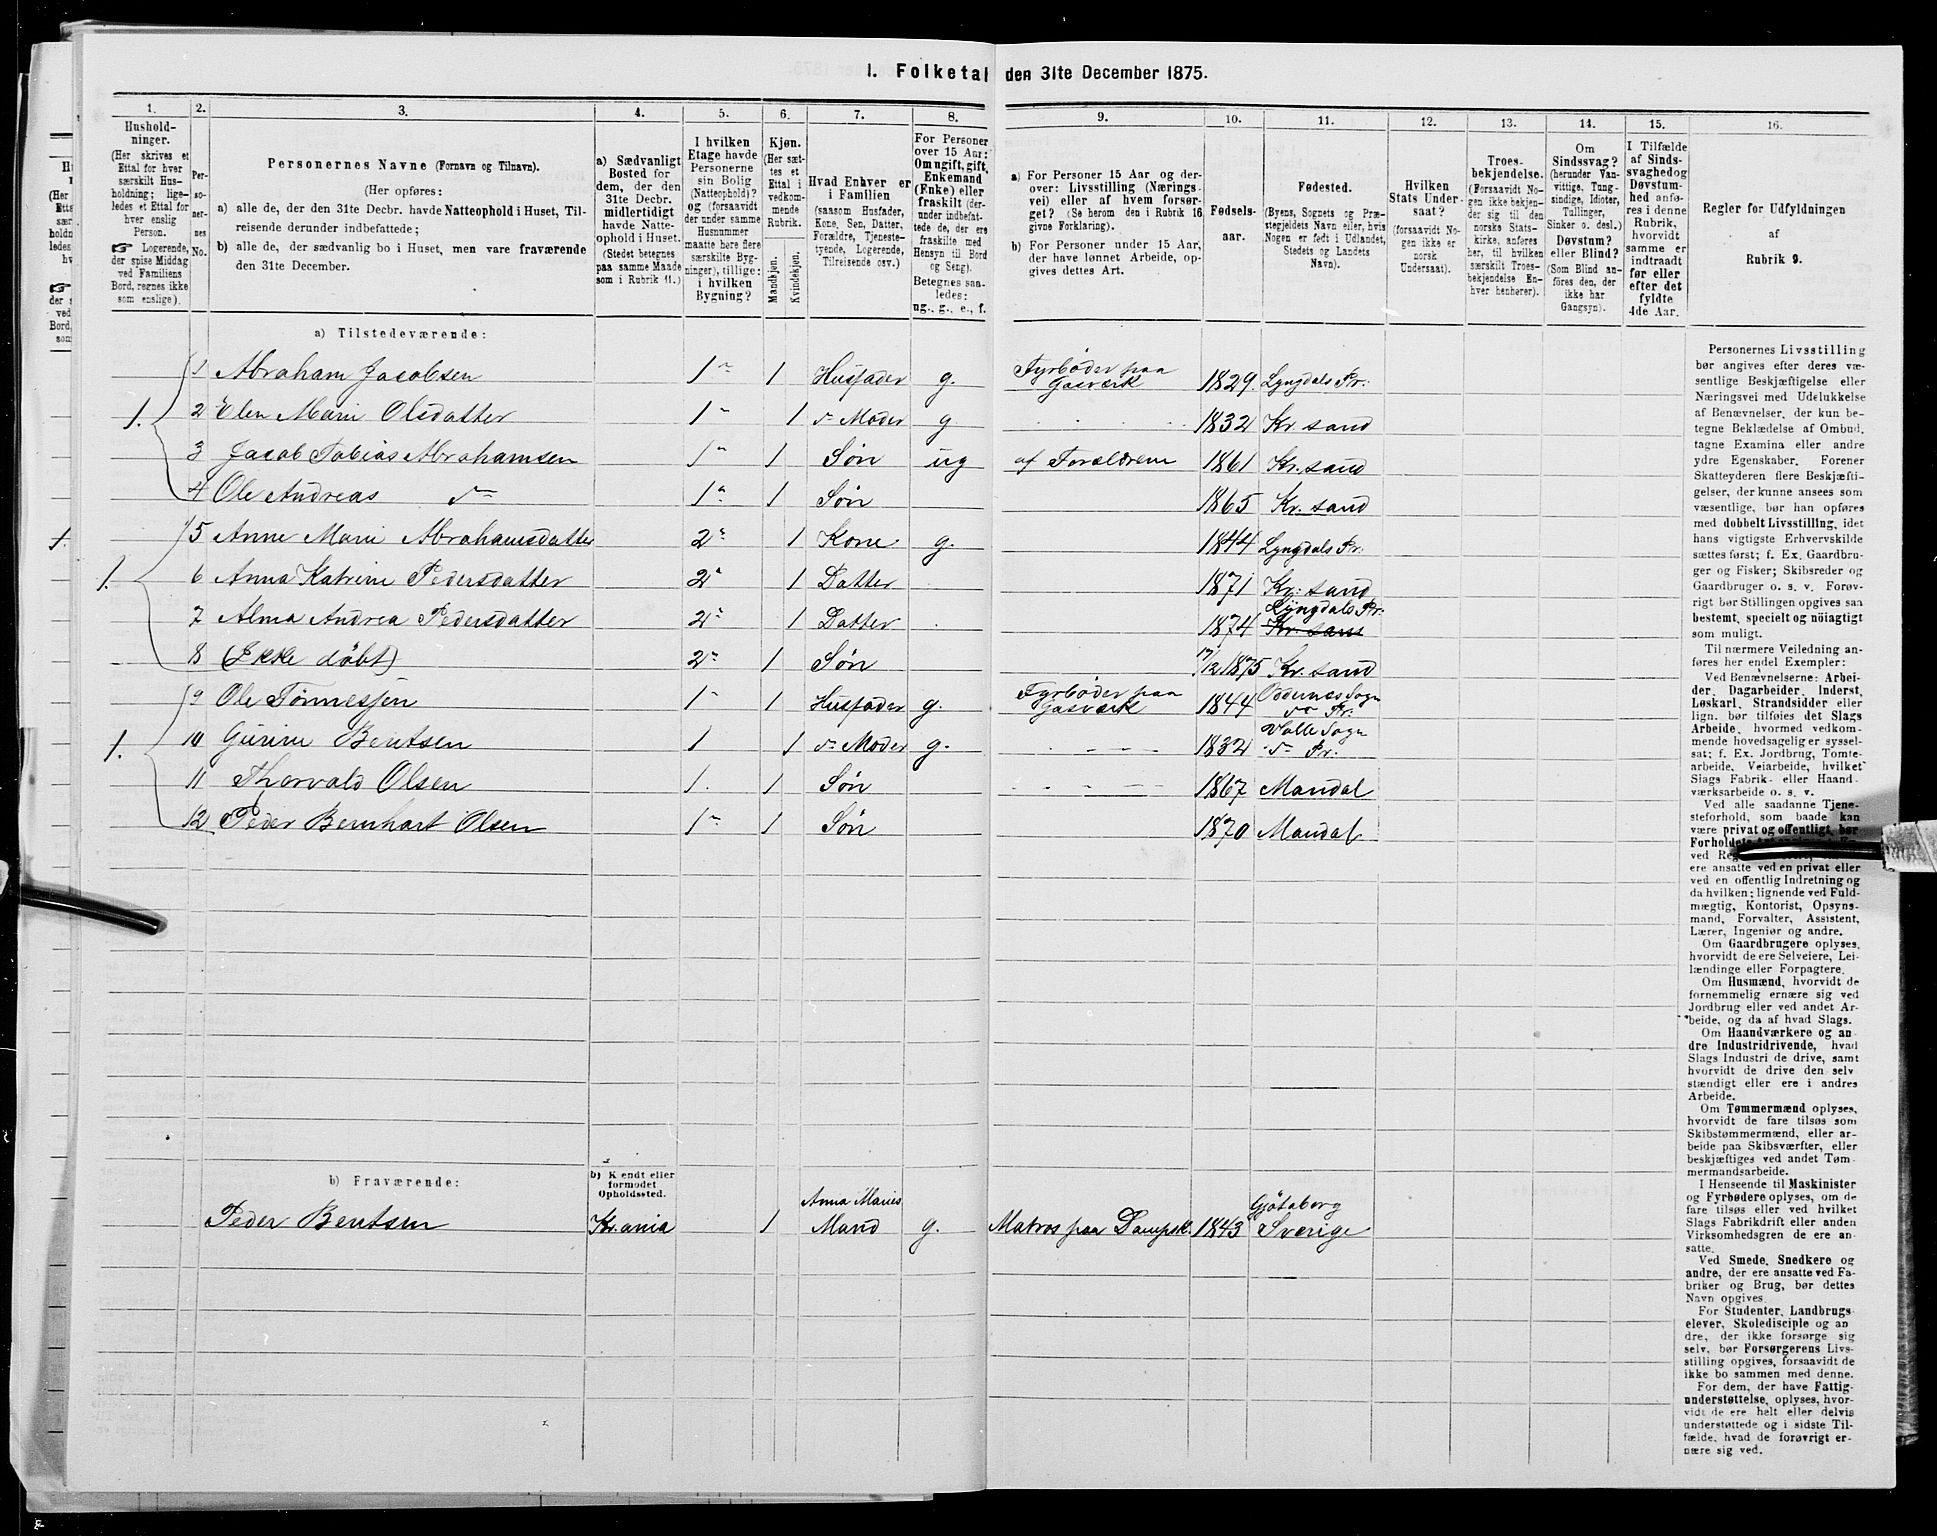 1. Folketal den 31te December 1875.
1. 2. 3. 4. 5. 6. 7. 8. 9. 10. 11. 12. 13. 14. 15. 16.
Hushold-
ninger.
(Her skrives et
Ettal for hver
særskilt Hus-
holdning; lige-
ledes et Ettal for
hver enslig
Person.
Logerende,
der spise Middag
ved Familiens
Bord, regnes ikke
som enslige).
Per-
so-
ner-
nes
No.
Personernes Navne (Fornavn og Tilnavn).
(Her opføres:
a) alle de, der den 31te Decbr. havde Natteophold i Huset, Til-
reisende derunder indbefattede;
b) alle de, der sædvanlig bo i Huset, men vare fraværende
den 31te December.
a) Sædvanligt
Bosted for
dem, der den
31te Decbr.
midlertidigt
havde Natte-
ophold i Huset.
(Stedet betegnes
paa samme Maade
som i Rubrik 11.)
I hvilken
Etage havde
Personerne
sin Bolig
(Natteophold)?
og (forsaavidt
der under samme
Husnummer
maatte høre flere
særskilte Byg-
ninger), tillige:
i hvilken
Bygning?
Kjøn.
(Her sæt-
tes et
Ettal i
vedkom-
mende
Rubrik.
Mandkjøn.
Kvindekjøn.
Hvad Enhver er
i Familien
(saasom Husfader,
Kone, Søn, Datter,
Forældre, Tjeneste-
tyende, Logerende,
Tilreisende osv.)
For Personer
over 15 Aar:
Om ugift, gift,
Enkemand
(Enke) eller
fraskilt (der-
under indbefat-
tede de, der ere
fraskilte med
Hensyn til Bord
og Seng).
Betegnes saa-
ledes:
ug., g., e., f.
a) For Personer 15 Aar og der-
over: Livsstilling (Nærings-
vei) eller af hvem forsør-
get? (Se herom den i Rubrik 16
givne Forklaring).
b) For Personer under 15 Aar,
der have lønnet Arbeide, op-
gives dettes Art.
Fødsels-
aar.
Fødested.
(Byens, Sognets og Præ-
stegjeldets Navn eller, hvis
Nogen er født i Udlandet,
Stedets og Landets
Navn).
Hvilken
Stats Under-
saat?
(forsaavidt No-
gen ikke er
norsk
Undersaat).
Troes-
bekjendelse.
(Forsaavidt No-
gen ikke bekjen-
der sig til den
norske Stats-
kirke, anføres
her, til hvilken
særskilt Troes-
bekjendelse En-
hver henhører).
Om
Sindssvag?
(herunder Van-
vittige, Tung-
sindige, Idioter,
Tullinger,
Sinker o. desl.)
Døvstum?
eller Blind?
(Som Blind an-
føres den, der
ikke har
Gangsyn).
I Tilfælde
af Sinds-
svaghed og
Døvstum-
hed anfø-
res i denne
Rubrik,
hvorvidt
samme er
indtraadt
før eller
efter det
fyldte
4de Aar.
Regler for Udfyldningen
af
Rubrik 9.
a) Tilstedeværende:
1 Abraham Jacobsen 1 1 Husfader g. Fyrbøder paa Gasværk 1829. Lyngdals Pr:
1. 2 Elen Marie Olsdatter 1 1 Moder g. 1832 Kr. sand
3 Jacob Tobias Abrahamsen 1 1 Søn ug af Forældrene 1861 Kr. sand
4 Ole Andreas 1 1 Søn 1865 Kr. sand
5 Anne Marie Abrahamsdatter 2 1 Kone g. 1844 Lyngdals Pr.
1. 6 Anna Katrine Pedersdatter 2 1 Datter 1871 Kr. sand
7 Alma Andrea Pedersdatter 2 1 Datter 1874 Lyngdals Pr: Kr. sand
8 (Ikke døbt) 2 1 Søn 17/12 1875 Kr. sand
9 Ole Tønnesjen 1 1 Husfader g. Fyrbøder paa Gasværk 1844 Oddernes Sogn do Pr.
1. 10 Gurine Bentsen 1 1 Moder g. 1832 Valle Sogn do Pr.
11 Thorvald Olsen 1. 1 Søn 1867 Mandal
12 Peder Bernhart Olsen 1 1 Søn 1870 Mandal
b) Fraværende:
b) Kendt eller
formodet
Opholdssted.
Peder Bentsen Kr.ania 1 Anna Maries Mand g. Matros paa Dampsk. 1843 Gjøtaborg Sverige
Personernes Livsstilling
bør angives efter deres væ-
sentlige Beskjæftigelse eller
Næringsvei med Udelukkelse
af Benævnelser, der kun be-
tegne Beklædelse af Ombud,
tagne Examina eller andre
ydre Egenskaber. Forener
Skatteyderen flere Beskjæfti-
gelser, der kunne ansees som
væsentlige, bør han opføres
med dobbelt Livsstilling, idet
hans vigtigste Erhvervskilde
sættes først; f. Ex. Gaardbru-
ger og Fisker; Skibsreder og
Gaardbruger o. s. v. Forøv-
rigt bør Stillingen opgives saa
bestemt, specielt og nöiagtigt
som muligt.
Til nærmere Veiledning an-
føres her endel Exempler:
Ved Benævnelserne: Arbei-
der, Dagarbeider, Inderst,
Løskarl, Strandsidder eller
lign. bør tilføies det Slags
Arbeide, hvormed vedkom-
mende hovedsagelig er syssel-
sat; f. Ex. Jordbrug, Tomte-
arbeide, Veiarbeide, hvilket
Slags Fabrik- eller Haand-
værksarbeide o. s. v.
Ved alle saadanne Tjene-
steforhold, som baade kan
være privat og offentligt, bør
ere ansatte ved en privat eller
ved en offentlig Indretning og
da hvilken; lignende ved Fuld-
mægtig, Kontorist, Opsyns-
mand, Forvalter, Assistent,
Lærer, Ingeniør og andre.
Om Gaardbrugere oplyses,
hvorvidt de ere Selveiere, Lei-
lændinge eller Forpagtere.
Om Husmænd, hvorvidt de
fornemmelig ernære sig ved
Jordbrug eller ved andet Ar-
beide, og da af hvad Slags.
Om Haandværkere og an-
dre Industridrivende, hvad
Slags Industri de drive, samt
hvorvidt de drive den selv
stændigt eller ere i andres
Arbeide.
Om Tømmermænd oplyses,
hvorvidt de fare tilsøs som
Skibstømmermænd, eller ar-
beide paa Skibsværfter, eller
beskjæftiges ved andet Tøm-
mermandsarbeide.
I Henseende til Maskinister
og Fyrbødere oplyses, om de
fare tilsøs eller ved hvilket
Slags Fabrikdrift eller anden
Virksomhedsgren de ere an-
satte.
Ved Smede, Snedkere og
andre, der ere ansatte ved Fa-
briker og Brug, bør dettes
Navn opgives.
For Studenter, Landbrugs-
elever, Skoledisciple og an
dre, der ikke forsørge sig
selv, bør Forsørgerens Livs-
stilling opgives, forsaavidt de
ikke bo sammen med denne.
For dem, der have Fattig-
understøttelse, oplyses, hvor-
vidt de ere helt eller delvis
understøttede og i sidste Til-
fælde, hvad de forøvrigt er-
nære sig ved.